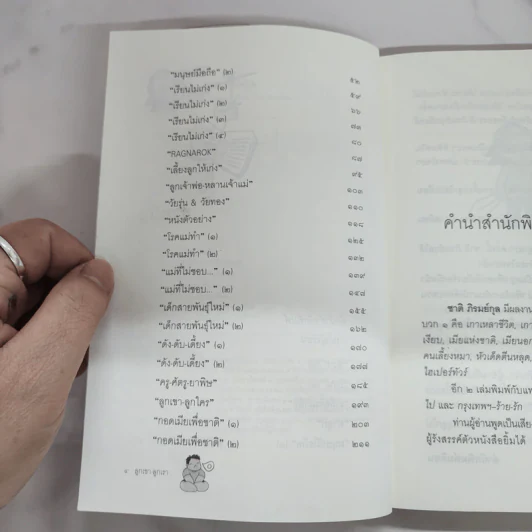 "มนุษย์มือถือ" (๒) ๕๒
"เรียนไม่เก่ง" (๑) ๕๙
"เรียนไม่เก่ง" (๒) ๖๖
"เรียนไม่เก่ง" (๓) ๗๓
"เรียนไม่เก่ง" (๔) ๘๐
"RAGNAROK" ๘๗
"เลี้ยงลูกให้เก่ง" ๙๕
"ลูกเจ้าพ่อ-หลานเจ้าแม่" ๑๐๓
"วัยรุ่น & วัยทอง" ๑๑๐
"หนังตัวอย่าง" ๑๑๘
"โรคแม่ทำ" (๑) ๑๒๕
"โรคแม่ทำ" (๒) ๑๓๒
"แม่ที่ไม่ชอบ..." (๑) ๑๓๙
"แม่ที่ไม่ชอบ..." (๒) ๑๔๘
"เด็กสายพันธุ์ใหม่" (๑) ๑๕๕
"เด็กสายพันธุ์ใหม่" (๒) ๑๖๒
"ดัง-ดับ-เดี้ยง" (๑) ๑๗๐
"ดัง-ดับ-เดี้ยง" (๒) ๑๗๘
"ครู-ศัตรู-ยาพิษ" ๑๘๕
"ลูกเขา-ลูกใคร" ๑๙๓
"กอดเมียเพื่อชาติ" (๑) ๒๐๓
"กอดเมียเพื่อชาติ" (๒) ๒๑๑
ลูกเขา ลูกเรา
คำนำสำนักพิ
ชาติ ภิรมย์กุล มีผลงาน
บวก ๑ คือ เกาเหลาชีวิต, เกา
เงียบ, เมียแห่งชาติ, เมียนอก
คนเลี้ยงหมา, หัวเด็ดตีนหลุด,
ไฮเปอร์ทัวร์
อีก ๒ เล่มพิมพ์กับแพ
ไป และ กรุงเทพฯ-ร้าย-รัก
ท่านผู้อ่านพูดเป็นเสีย
ผู้รังสรรค์ตัวหนังสือยิ้มได้